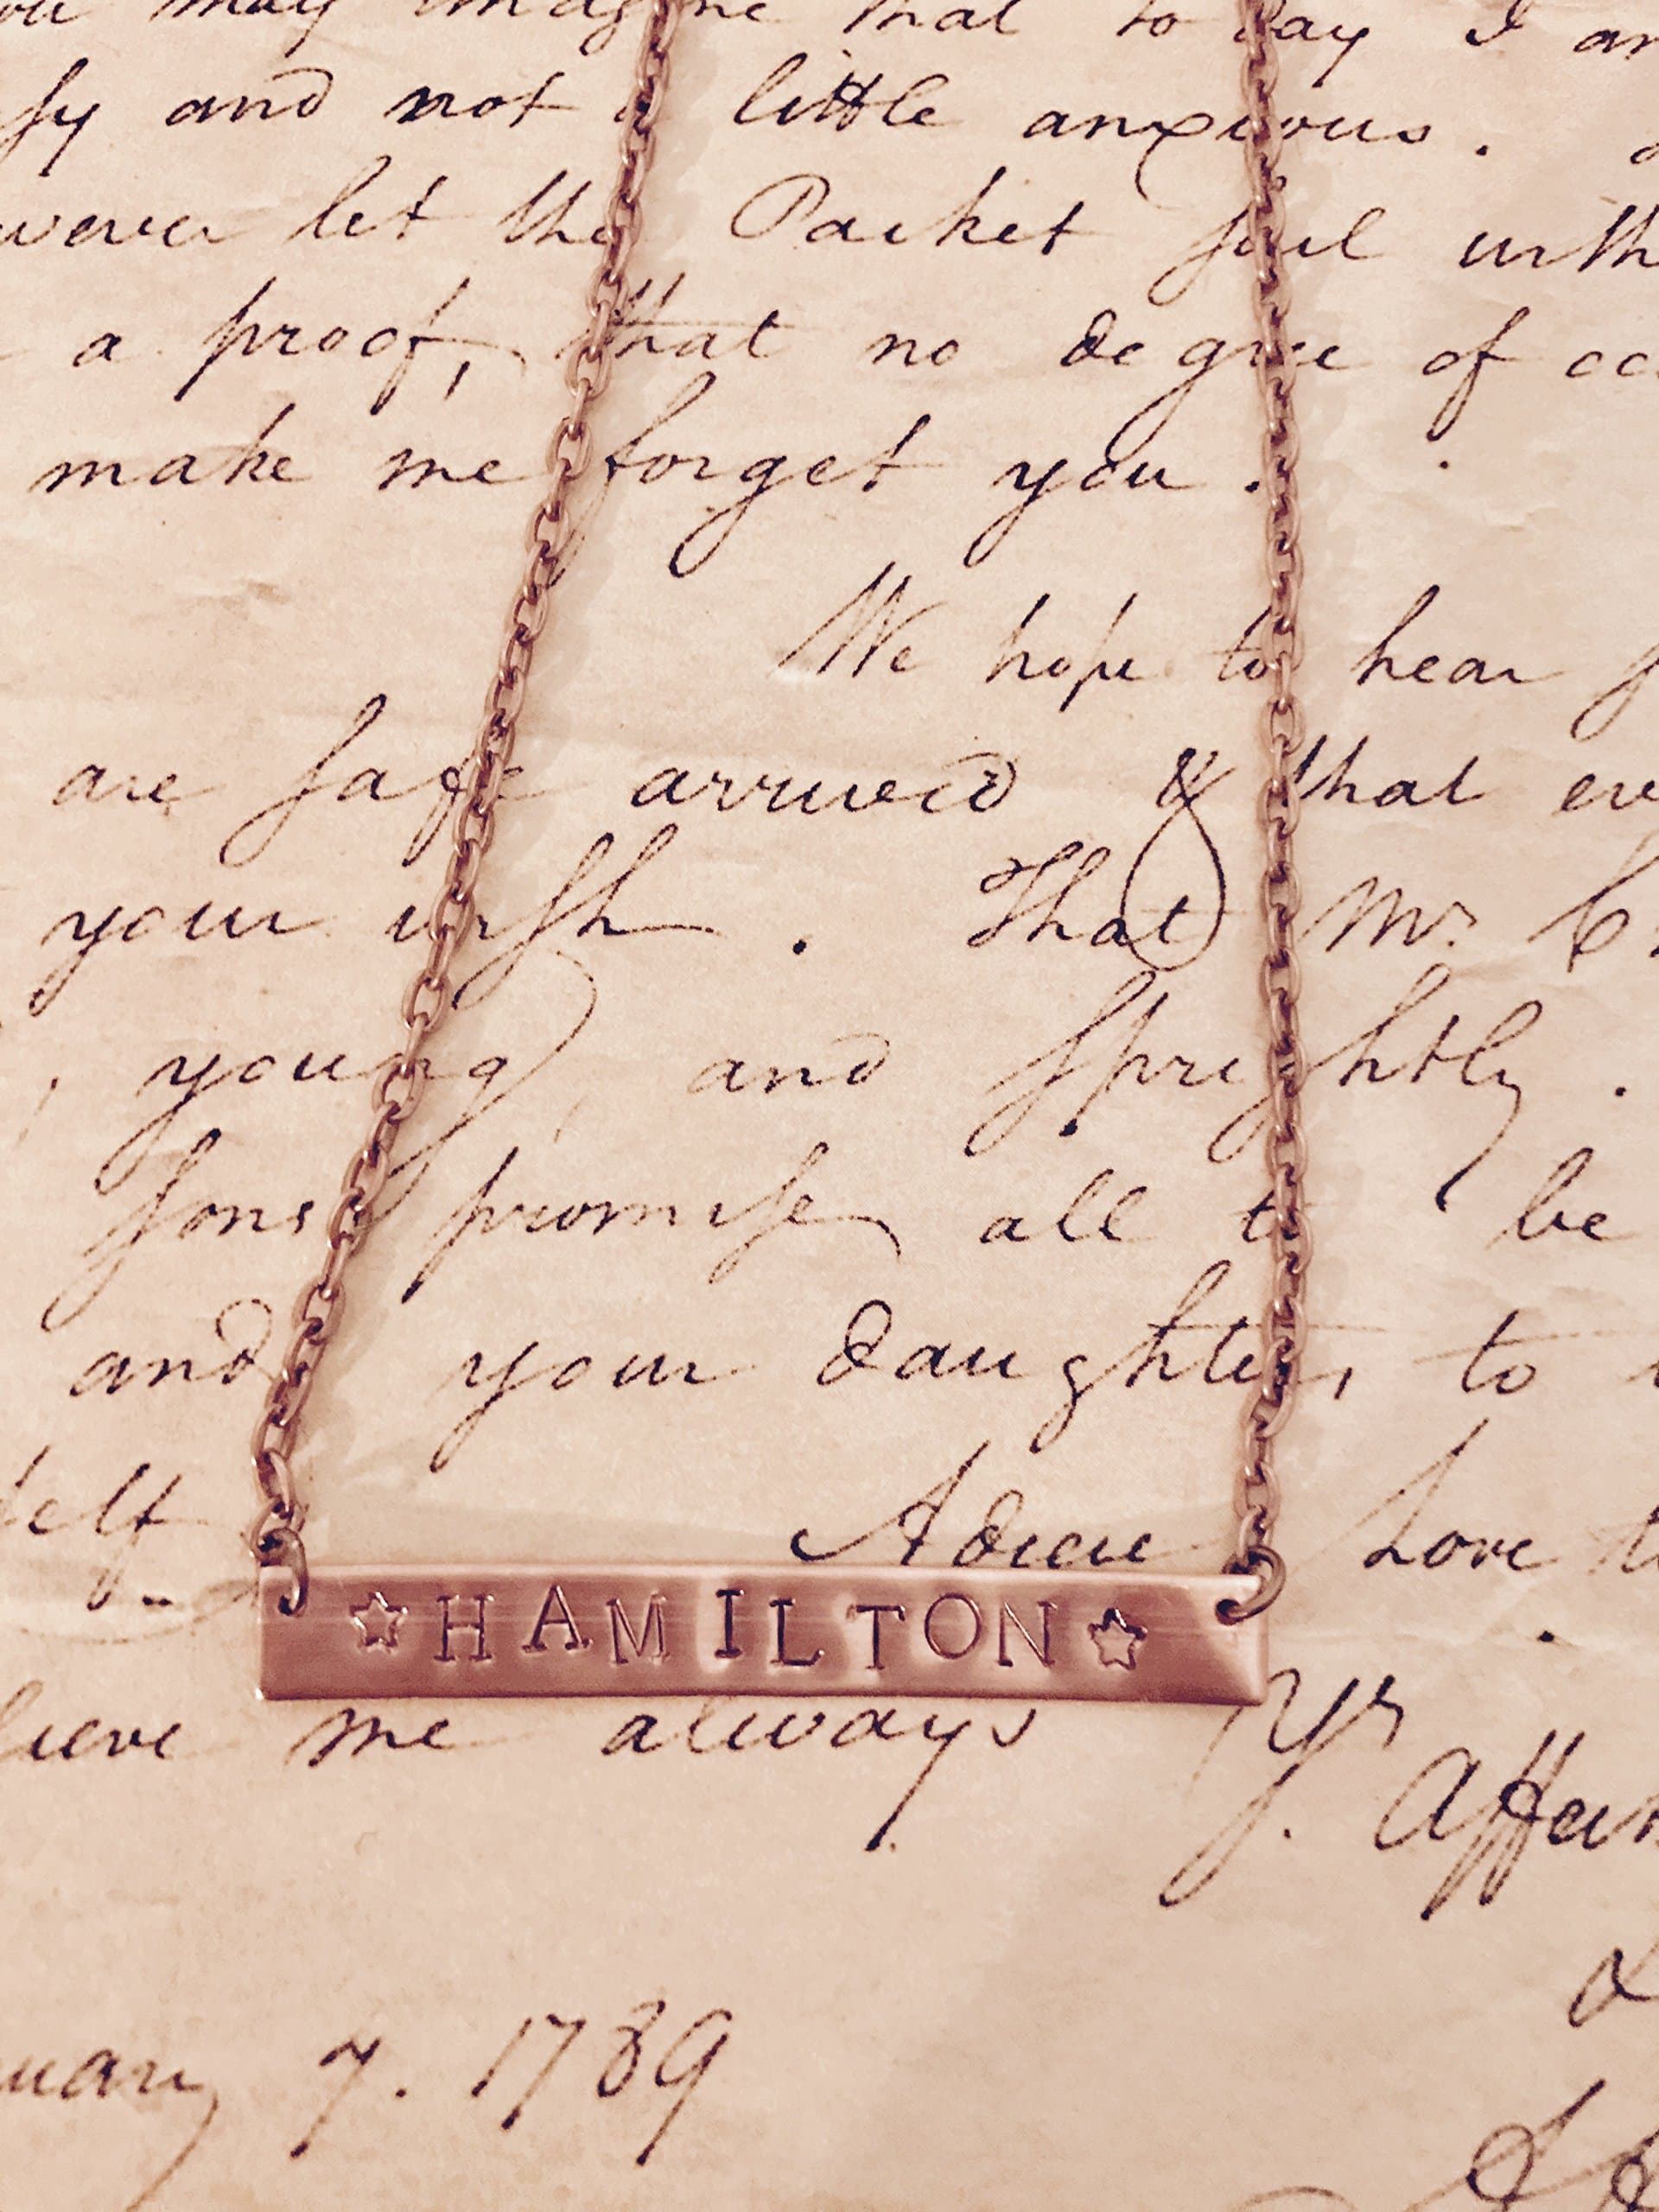 may imagine that to day I am
and not a little anxious.
let the Packet sail
a proof, that no degree of
make me forget you.
We hope to hear
are safe arrived & that
your wish. That Mr.
young and sprightly.
sons promise all to be
and your daughter, to
Adieu Love
☆HAMILTON☆
me always Yr
7. 1789